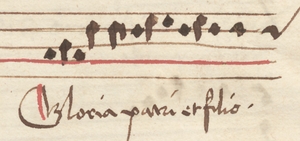 Gloria patri et filio.